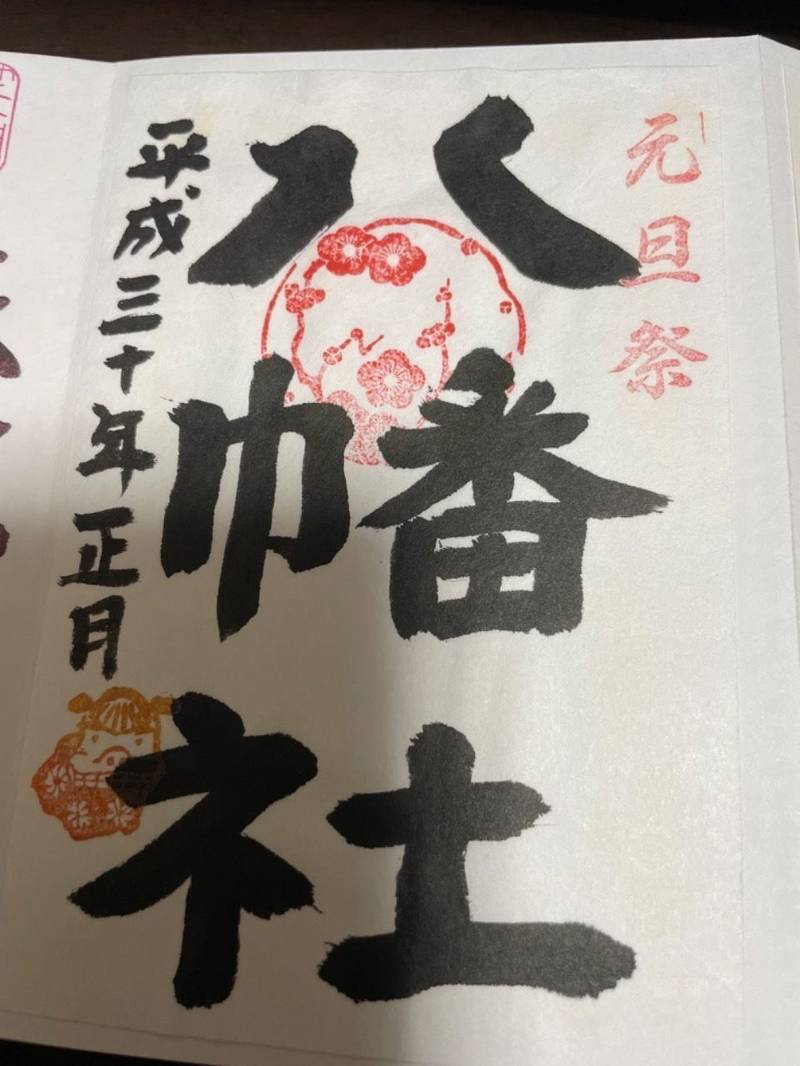 元旦祭
八幡社
平成三十年正月